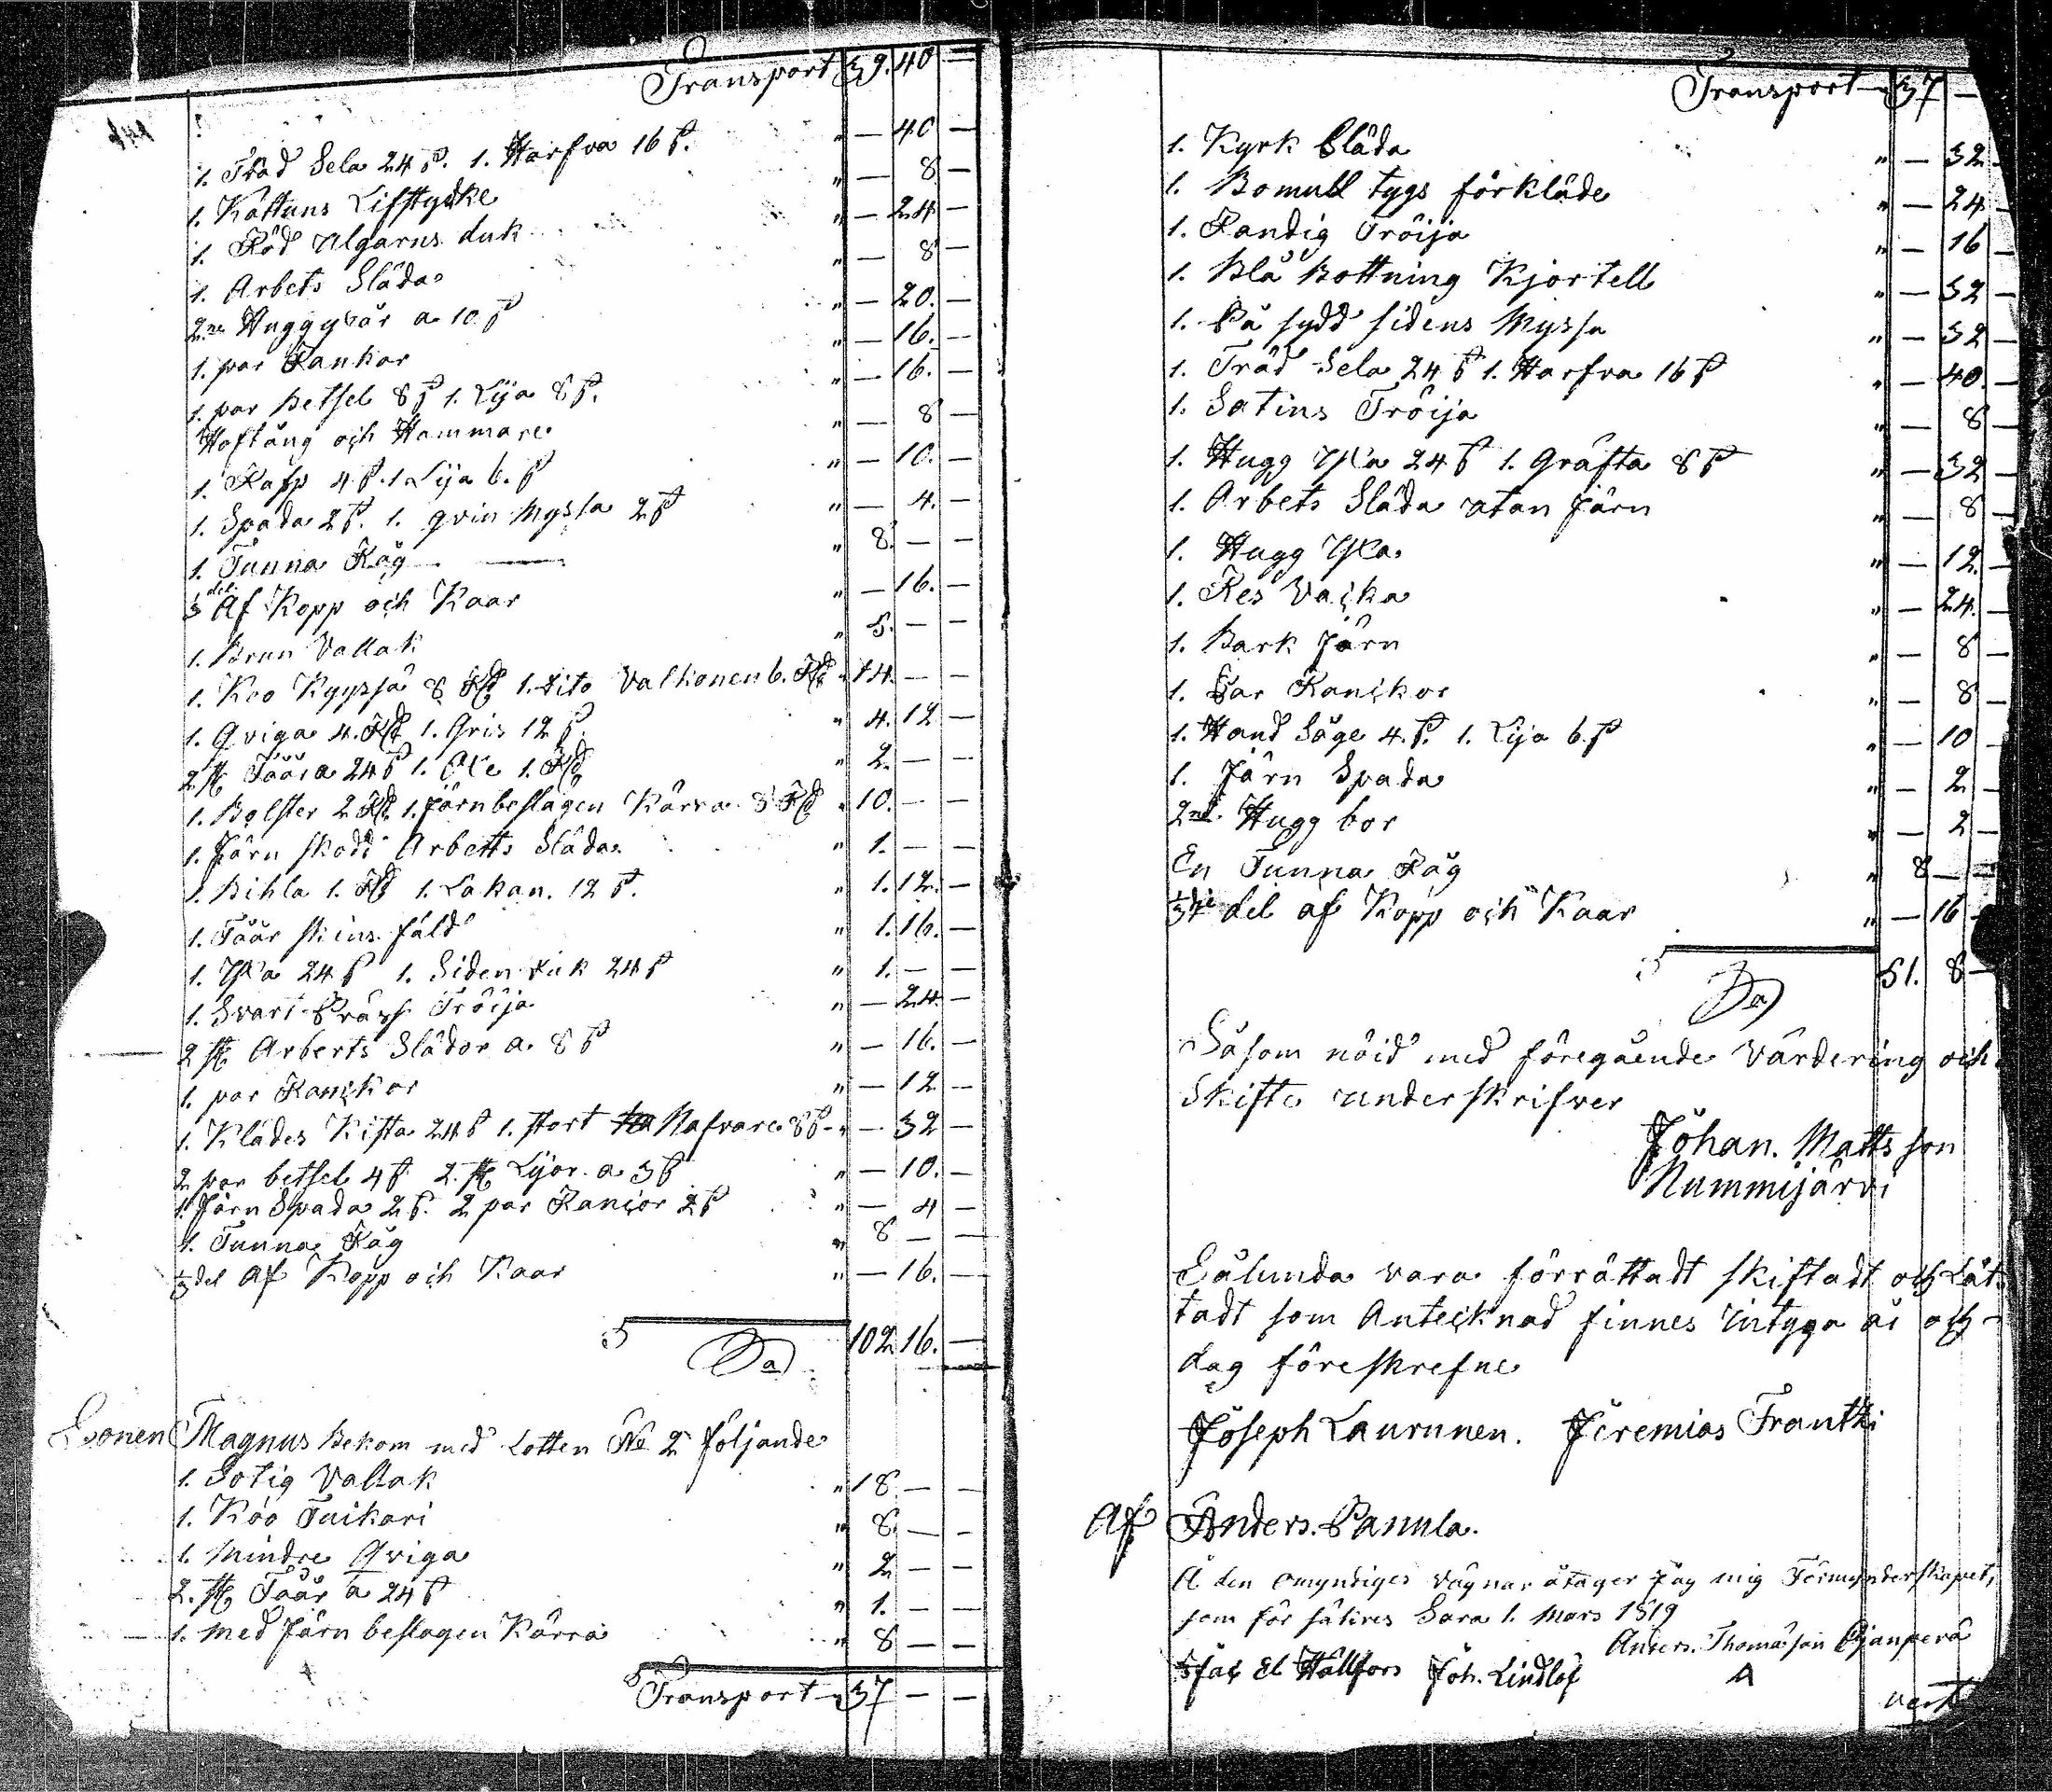 Transport 39. 40 —
1. Tråd Sela 24 ß. 1. Harfva 16 ß. " — 40 —
1. Kattuns Lifstycke " — 8 —
1. Röd Ulgarns duk " — 24 —
1. Arbets Släda " — 8 —
2ne Huggyxar a 10 ß " — 20. —
1. par Rankor " — 16. —
1. par Betsel 8 ß 1. Lija 8 ß. " — 16. —
Hoftång och Hammare " — 8 —
1. Rasp 4 ß. 1 Lija 6. ß " — 10. —
1. Spada 2 ß. 1. qvin Myssa 2 ß " — 4. —
1. Tunna Råg " 8. — —
1/3 del Af Kopp och Kaar " — 16. —
1. Brun Vallak " 5. — —
1. Koo Kyyssä 8 Rd 1. dito Valkonen 6. Rd " 14. — —
1. Qviga 4. Rd 1. Gris 12 ß. " 4. 12 —
2 st Fååra 24 ß 1. Oxe 1. Rd " 2. — —
1. Bolster 2 Rd. 1. Järnbeslagen Kärra 8 Rd " 10. — —
1. Järn skodd Arbetts Släda " 1. — —
1. Bihla 1. Rd 1. Lakan. 12 ß. " 1. 12. —
1. Fåår skins fäld " 1. 16. —
1. Yxa 24 ß 1. Siden duk 24 ß " 1. — —
1. Svart Tröija " — 24. —
2 st Arberts Slädor a. 8 ß " — 16. —
1. par Ranckor " — 12 —
1. Klädes Kista 24 ß 1. stort Nafvare 8 ß " — 32 —
2 par betsel 4 ß. 2. st Lijor a 3 ß " — 10. —
1. Järn Spada 2 ß. 2 par Rancor 2 ß " — 4 —
1. Tunna Råg " 8 — —
1/3 del af Kopp och Kaar " — 16. —
Sa 102 16. —
Sonen Magnus Bekom med Lotten No 2 följande
1. Sotig Vallak " 18 — —
1. Koo Tuikari " 8. — —
1. Mindre Qviga " 2 — —
2. st Fåår a 24 ß " 1. — —
1. med Järn beslagen Kärra " 8 — —
Transport 37 — —
Transport 37 —
1. Kyrk Släda " — 32
1. Bomull tygs förkläde " — 24
1. Randig Tröija " — 16
1. Blå Bottning Kjortell " — 32
1. På sydd sidens Myssa " — 32
1. Tråd Sela 24 ß 1. Harfva 16 ß " — 40
1. Satins Tröija " — 8
1. Hugg Yxa 24 ß 1. Gräfta 8 ß " — 32
1. Arbets Släda utan Järn " — 8
1. Hugg Yxa " — 12
1. Res Vacka " — 24.
1. Bark Järn " — 8
1. Par Ranckor " — 8
1. Hand Såge 4. ß. 1. Lija 6 ß " — 10
1. Järn Spada " — 2
2ne Hugg bor " — 2
En Tunna Råg " 8 —
1/3die del af Kopp och Kaar " — 16
Sa 51. 8 —
Såsom nöid med föregående värdering och
Skifte underskrifver
Johan. Mattsson
Nummijärvi
Sålunda vara förrättadt skiftadt och Låt
tadt som Antecknad finnes intyga år och
dag föreskrefne
Joseph Laurunen. Jeremias Frantti
Af Anders. Panula.
Å den omyndiges vägnar åtager jag mig Förmynderskapet,
som för Sara 1. Mars 1819
Anders. Thomasson Ojanperä
Isac El Hällfors Joh. Lindlöf A
vert